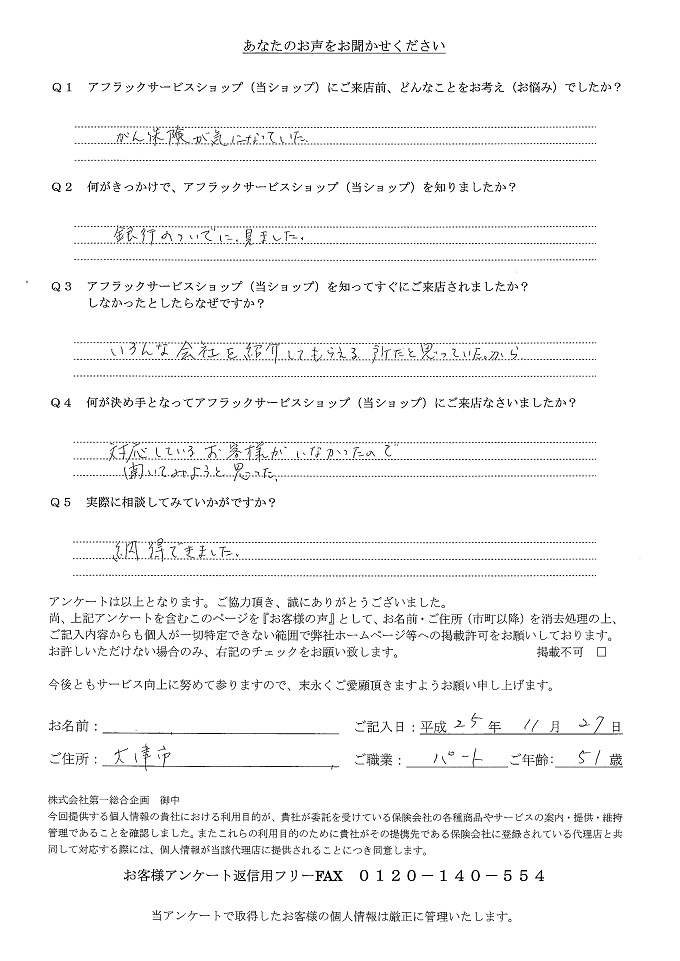 あなたのお声をお聞かせください
Q1 アフラックサービスショップ（当ショップ）にご来店前、どんなことをお考え（お悩み）でしたか？
がん保険が気になっていた。
Q2 何がきっかけで、アフラックサービスショップ（当ショップ）を知りましたか？
銀行のついでに、見ました。
Q3 アフラックサービスショップ（当ショップ）を知ってすぐにご来店されましたか？
しなかったとしたらなぜですか？
いろんな会社を紹介してもらえる所だと思っていたから
Q4 何が決め手となってアフラックサービスショップ（当ショップ）にご来店なさいましたか？
対応しているお客様がいなかったので
聞いてみようと思った。
Q5 実際に相談してみていかがですか？
納得できました。
アンケートは以上となります。ご協力頂き、誠にありがとうございました。
尚、上記アンケートを含むこのページを『お客様の声』として、お名前・ご住所（市町以降）を消去処理の上、
ご記入内容からも個人が一切特定できない範囲で弊社ホームページ等への掲載許可をお願いしております。
お許しいただけない場合のみ、右記のチェックをお願い致します。 掲載不可 □
今後ともサービス向上に努めて参りますので、末永くご愛顧頂きますようお願い申し上げます。
お名前： ご記入日：平成 25 年 11 月 27 日
ご住所： 大津市 ご職業： パート ご年齢： 51 歳
株式会社第一総合企画 御中
今回提供する個人情報の貴社における利用目的が、貴社が委託を受けている保険会社の各種商品やサービスの案内・提供・維持
管理であることを確認しました。またこれらの利用目的のために貴社がその提携先である保険会社に登録されている代理店と共
同して対応する際には、個人情報が当該代理店に提供されることにつき同意します。
お客様アンケート返信用フリーFAX 0120－140－554
当アンケートで取得したお客様の個人情報は厳正に管理いたします。